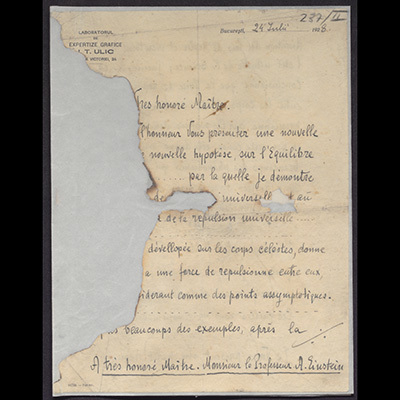 237/II
LABORATORUL
DE
EXPERTIZE GRAFICE
T. ULIC
VICTORIEI, 25
București, 24 Iulie
Très honoré Maître.
l'honneur Vous présenter une nouvelle
nouvelle hypotèse, sur l'Equilibre
par la quelle je démontre
de universelle au
de la repulsion universelle
dévellopée sur les corps célèstes, donne
a une force de repulsionne entre eux,
considerant comme des points assymptotiques.
beaucoups des exemples, après la
A très honoré Maître. Monsieur le Professeur A. Einstein